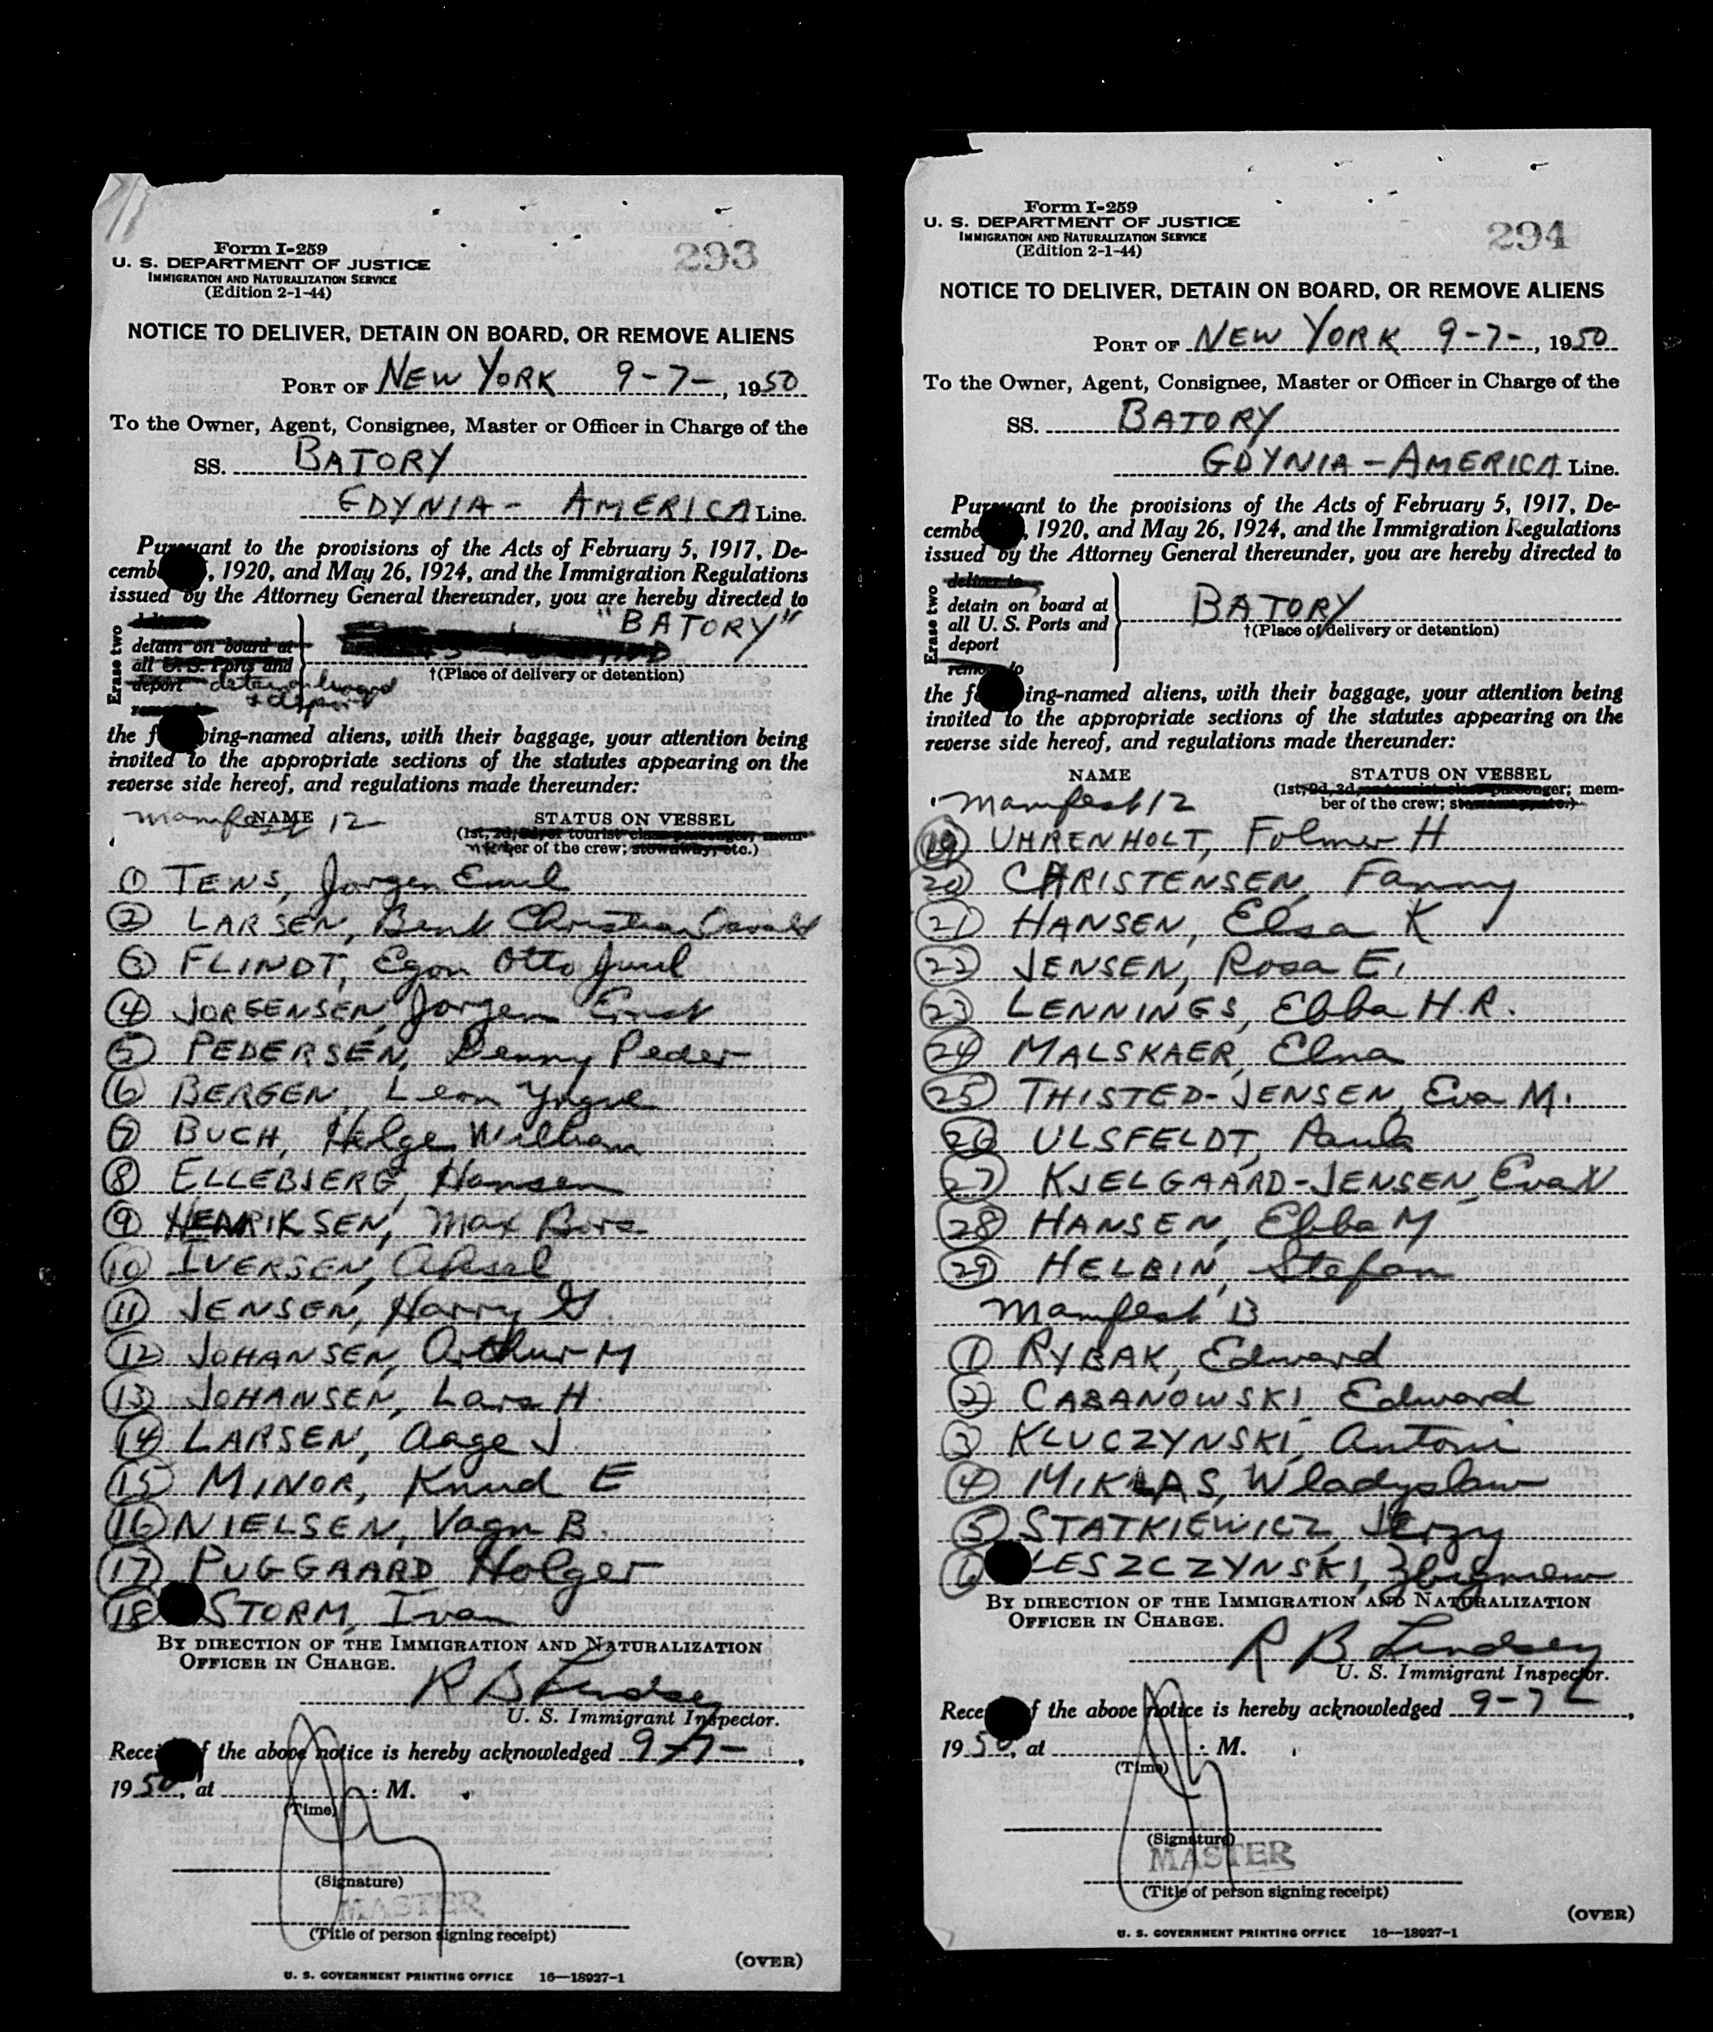 Form I-259
U. S. DEPARTMENT OF JUSTICE
IMMIGRATION AND NATURALIZATION SERVICE
(Edition 2-1-44)
293
NOTICE TO DELIVER, DETAIN ON BOARD, OR REMOVE ALIENS
PORT OF NEW YORK 9-7-, 1950
To the Owner, Agent, Consignee, Master or Officer in Charge of the
SS. BATORY
GDYNIA - AMERICA Line.
Pursuant to the provisions of the Acts of February 5, 1917, De-
cemb , 1920, and May 26, 1924, and the Immigration Regulations
issued by the Attorney General thereunder, you are hereby directed to
Erase two
detain on board at
all U. S. Ports and
deport
detain on board
& deport
"BATORY"
†(Place of delivery or detention)
the f ing-named aliens, with their baggage, your attention being
invited to the appropriate sections of the statutes appearing on the
reverse side hereof, and regulations made thereunder:
NAME
Manifest 12
STATUS ON VESSEL
(1st, 2d, 3d, or tourist class passenger; mem-
ber of the crew; stowaway, etc.)
1 TENS, Jorgen Emil
2 LARSEN, Bent Christian
3 FLINDT, Egon Otto Juul
4 JORGENSEN, Jorgen Ernst
5 PEDERSEN, Benny Peder
6 BERGEN, Leon Yngve
7 BUCH, Helge William
8 ELLEBJERG, Hansen
9 HENRIKSEN, Max
10 IVERSEN, Aksel
11 JENSEN, Harry G
12 JOHANSEN, Arthur M
13 JOHANSEN, Lars H.
14 LARSEN, Aage J.
15 MINOR, Knud E
16 NIELSEN, Vagn B.
17 PUGGAARD Holger
18 STORM, Ivan
BY DIRECTION OF THE IMMIGRATION AND NATURALIZATION
OFFICER IN CHARGE.
R B Lindsey
U. S. Immigrant Inspector.
Recei f the above notice is hereby acknowledged 9-7-,
1950, at : M.
(Time)
(Signature)
MASTER
(Title of person signing receipt)
(OVER)
U. S. GOVERNMENT PRINTING OFFICE 16—18927-1
Form I-259
U. S. DEPARTMENT OF JUSTICE
IMMIGRATION AND NATURALIZATION SERVICE
(Edition 2-1-44)
294
NOTICE TO DELIVER, DETAIN ON BOARD, OR REMOVE ALIENS
PORT OF NEW YORK 9-7-, 1950
To the Owner, Agent, Consignee, Master or Officer in Charge of the
SS. BATORY
GDYNIA - AMERICA Line.
Pursuant to the provisions of the Acts of February 5, 1917, De-
cembe , 1920, and May 26, 1924, and the Immigration Regulations
issued by the Attorney General thereunder, you are hereby directed to
Erase two
deliver to
detain on board at
all U. S. Ports and
deport
remove to
BATORY
†(Place of delivery or detention)
the f ing-named aliens, with their baggage, your attention being
invited to the appropriate sections of the statutes appearing on the
reverse side hereof, and regulations made thereunder:
NAME
Manifest 12
STATUS ON VESSEL
(1st, 2d, 3d, or tourist class passenger; mem-
ber of the crew; stowaway, etc.)
19 UHRENHOLT, Folmer H
20 CHRISTENSEN, Fanny
21 HANSEN, Elsa K
22 JENSEN, Rosa E.
23 LENNINGS, Ebba H.R.
24 MALSKAER, Elna
25 THISTED-JENSEN, Eva M.
26 ULSFELDT, Paula
27 KJELGAARD-JENSEN, Eva N
28 HANSEN, Ebba M
29 HELBIN, Stefan
Manifest B
1 RYBAK, Edward
2 CABANOWSKI, Edward
3 KLUCZYNSKI, Antoni
4 MIKLAS, Wladyslaw
5 STATKIEWICZ, Jerzy
6 LESZCZYNSKI, Zbigniew
BY DIRECTION OF THE IMMIGRATION AND NATURALIZATION
OFFICER IN CHARGE.
R B Lindsey
U. S. Immigrant Inspector.
Rece f the above notice is hereby acknowledged 9-7-,
1950, at : M.
(Time)
(Signature)
MASTER
(Title of person signing receipt)
(OVER)
U. S. GOVERNMENT PRINTING OFFICE 16—18927-1